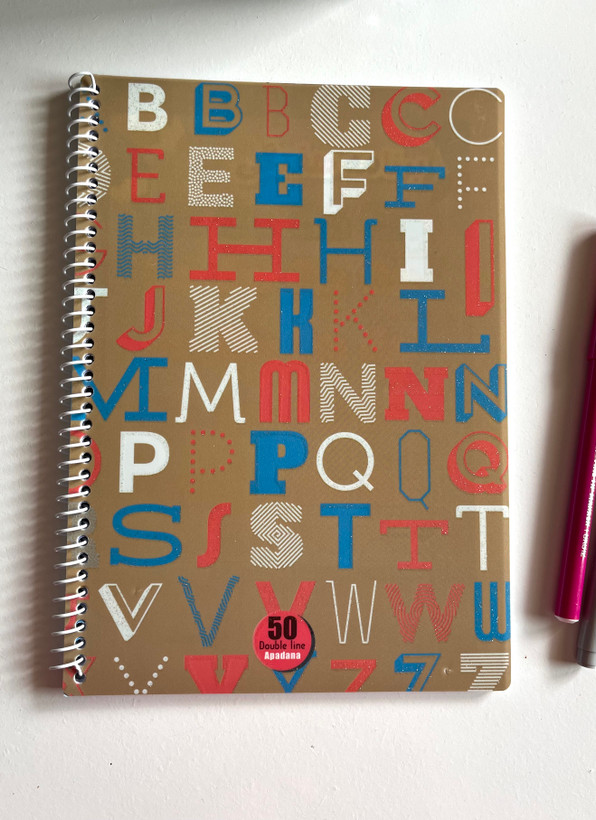 B B B C C C
E E E F F F
H H H I I
J K K K L
M M M N N N
P P P Q Q Q
S S S T T T
V V V W W W
50
Double line
Apadana
Y Y Y Y Z Z Z